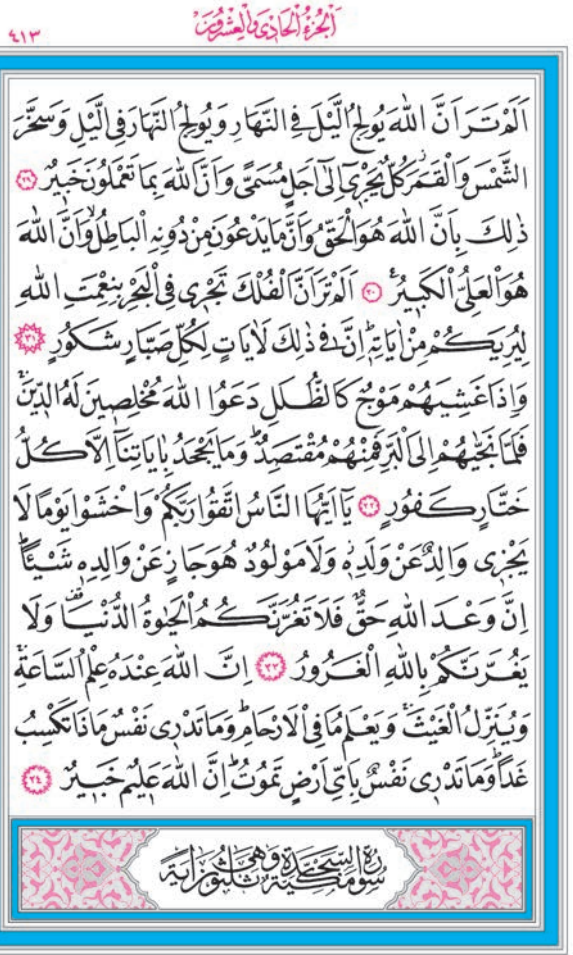 اَلْجُزْءُ الْحَادِى وَالْعِشْرُونَ
٤١٣
اَلَمْ تَرَ اَنَّ اللّٰهَ يُولِجُ الَّيْلَ فِى النَّهَارِ وَيُولِجُ النَّهَارَ فِى الَّيْلِ وَسَخَّرَ
الشَّمْسَ وَالْقَمَرَ كُلٌّ يَجْرٖٓى اِلٰٓى اَجَلٍ مُسَمًّى وَاَنَّ اللّٰهَ بِمَا تَعْمَلُونَ خَبٖيرٌ ﴿٢٩﴾
ذٰلِكَ بِاَنَّ اللّٰهَ هُوَ الْحَقُّ وَاَنَّ مَا يَدْعُونَ مِنْ دُونِهِ الْبَاطِلُۙ وَاَنَّ اللّٰهَ
هُوَ الْعَلِىُّ الْكَبٖيرُ ﴿٣٠﴾ اَلَمْ تَرَ اَنَّ الْفُلْكَ تَجْرٖى فِى الْبَحْرِ بِنِعْمَتِ اللّٰهِ
لِيُرِيَكُمْ مِنْ اٰيَاتِهٖؕ اِنَّ فٖى ذٰلِكَ لَاٰيَاتٍ لِكُلِّ صَبَّارٍ شَكُورٍ ﴿٣١﴾
وَاِذَا غَشِيَهُمْ مَوْجٌ كَالظُّلَلِ دَعَوُا اللّٰهَ مُخْلِصٖينَ لَهُ الدّٖينَۚ
فَلَمَّا نَجّٰيهُمْ اِلَى الْبَرِّ فَمِنْهُمْ مُقْتَصِدٌؕ وَمَا يَجْحَدُ بِاٰيَاتِنَٓا اِلَّا كُلُّ
خَتَّارٍ كَفُورٍ ﴿٣٢﴾ يَٓا اَيُّهَا النَّاسُ اتَّقُوا رَبَّكُمْ وَاخْشَوْا يَوْمًا لَا
يَجْزٖى وَالِدٌ عَنْ وَلَدِهٖؗ وَلَا مَوْلُودٌ هُوَ جَازٍ عَنْ وَالِدِهٖ شَيْـًٔاؕ
اِنَّ وَعْدَ اللّٰهِ حَقٌّ فَلَا تَغُرَّنَّكُمُ الْحَيٰوةُ الدُّنْيَاࣞ وَلَا
يَغُرَّنَّكُمْ بِاللّٰهِ الْغَرُورُ ﴿٣٣﴾ اِنَّ اللّٰهَ عِنْدَهُ عِلْمُ السَّاعَةِۚ
وَيُنَزِّلُ الْغَيْثَۚ وَيَعْلَمُ مَا فِى الْاَرْحَامِؕ وَمَا تَدْرٖى نَفْسٌ مَاذَا تَكْسِبُ
غَدًاؕ وَمَا تَدْرٖى نَفْسٌ بِاَىِّ اَرْضٍ تَمُوتُؕ اِنَّ اللّٰهَ عَلٖيمٌ خَبٖيرٌ ﴿٣٤﴾
سُورَةُ السَّجْدَةِ مَكِّيَّةٌ وَهِىَ ثَلٰثُونَ اٰيَةً